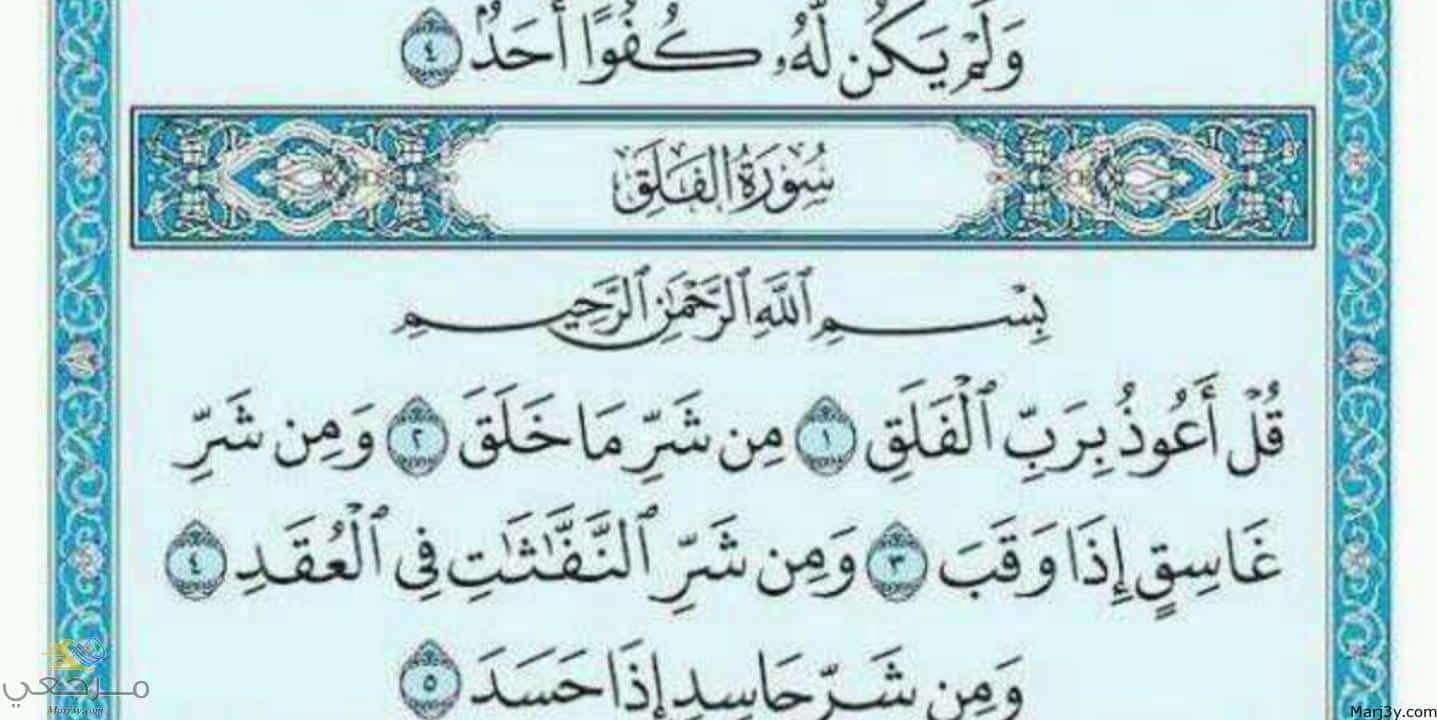 وَلَمْ يَكُن لَّهُۥ كُفُوًا أَحَدٌۢ ٤
سُورَةُ الفَلَقِ
بِسْمِ ٱللَّهِ ٱلرَّحْمَٰنِ ٱلرَّحِيمِ
قُلْ أَعُوذُ بِرَبِّ ٱلْفَلَقِ ١ مِن شَرِّ مَا خَلَقَ ٢ وَمِن شَرِّ
غَاسِقٍ إِذَا وَقَبَ ٣ وَمِن شَرِّ ٱلنَّفَّٰثَٰتِ فِى ٱلْعُقَدِ ٤
وَمِن شَرِّ حَاسِدٍ إِذَا حَسَدَ ٥
مرجعي
Marj3y.com
Marj3y.com